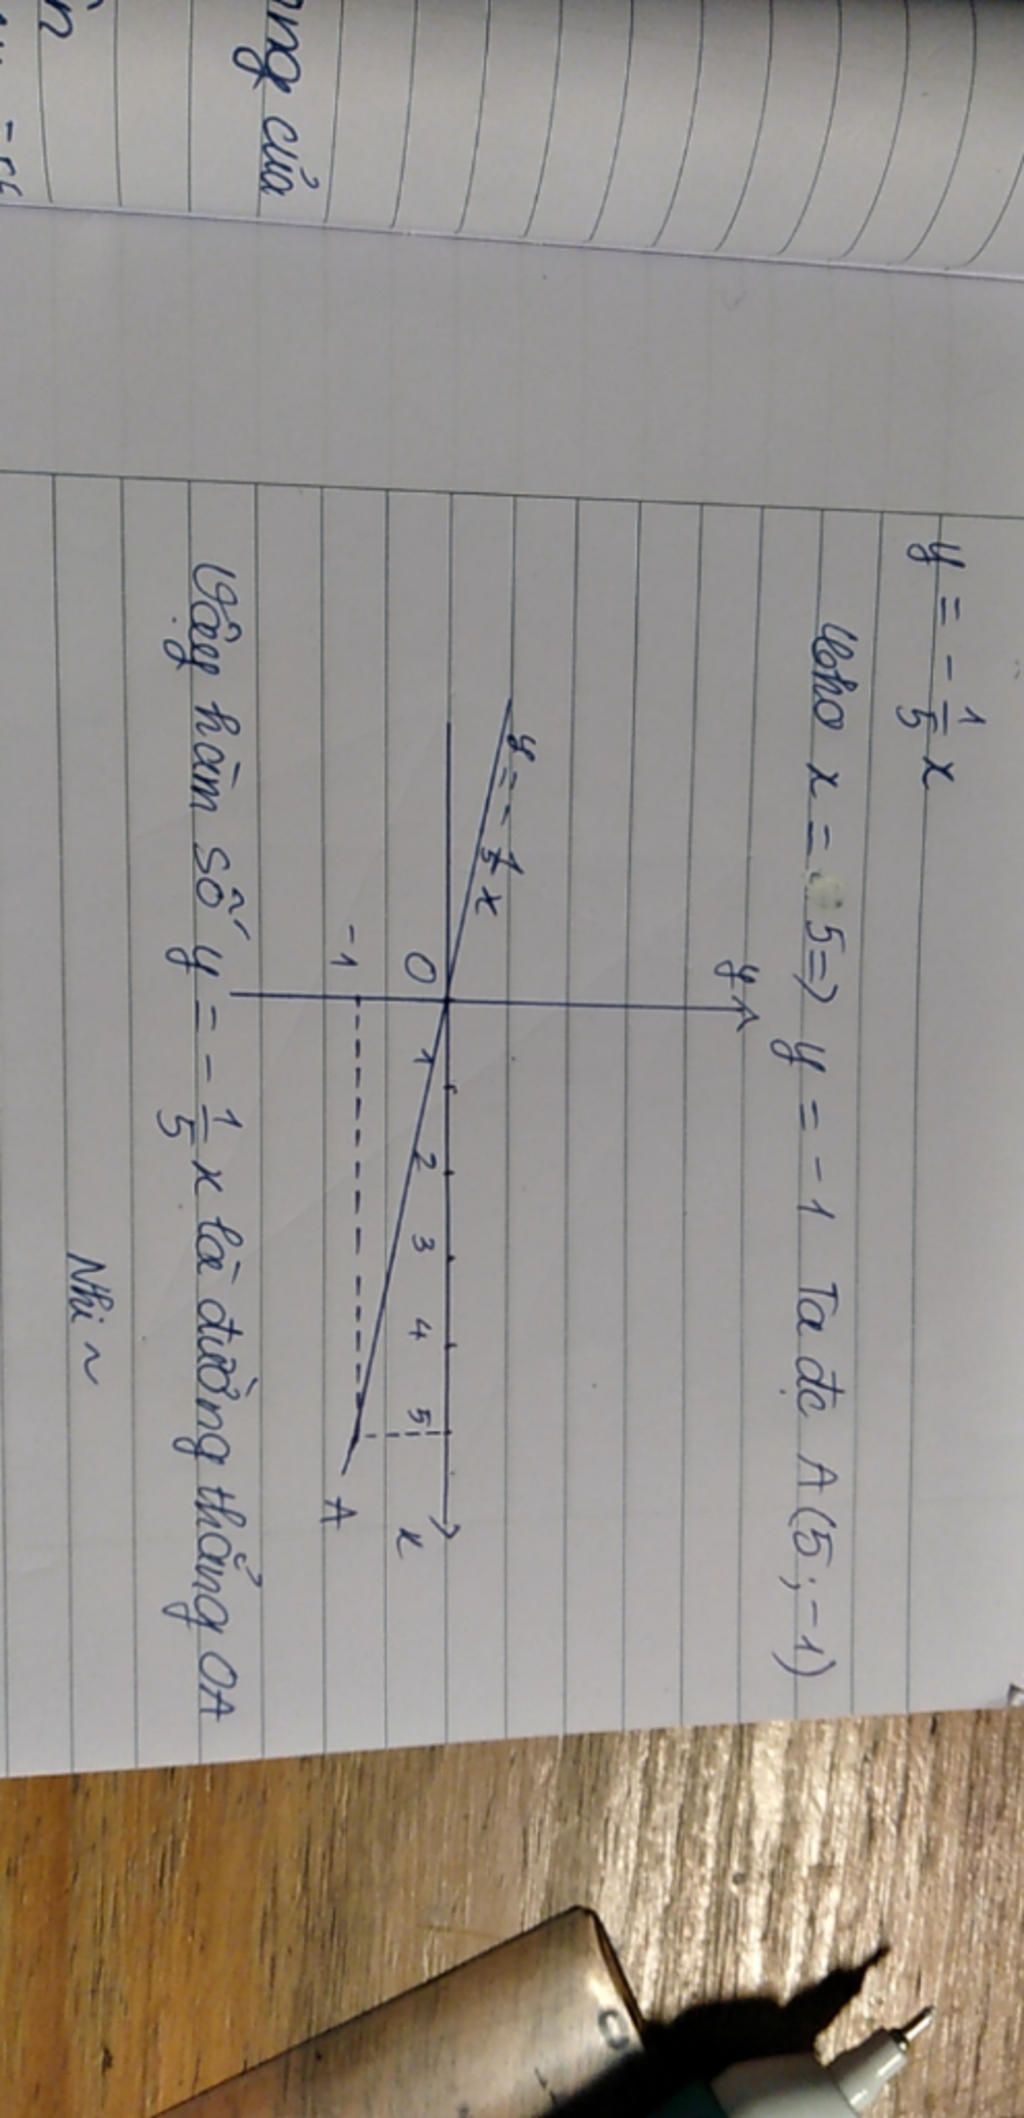 y = - 1/5 x
Cho x = 5 => y = -1 Ta đc A (5 ; -1)
y
y = - 1/5 x
O 1 2 3 4 5 x
-1
A
Vậy hàm số y = - 1/5 x là đường thẳng OA
Nhi ~
của